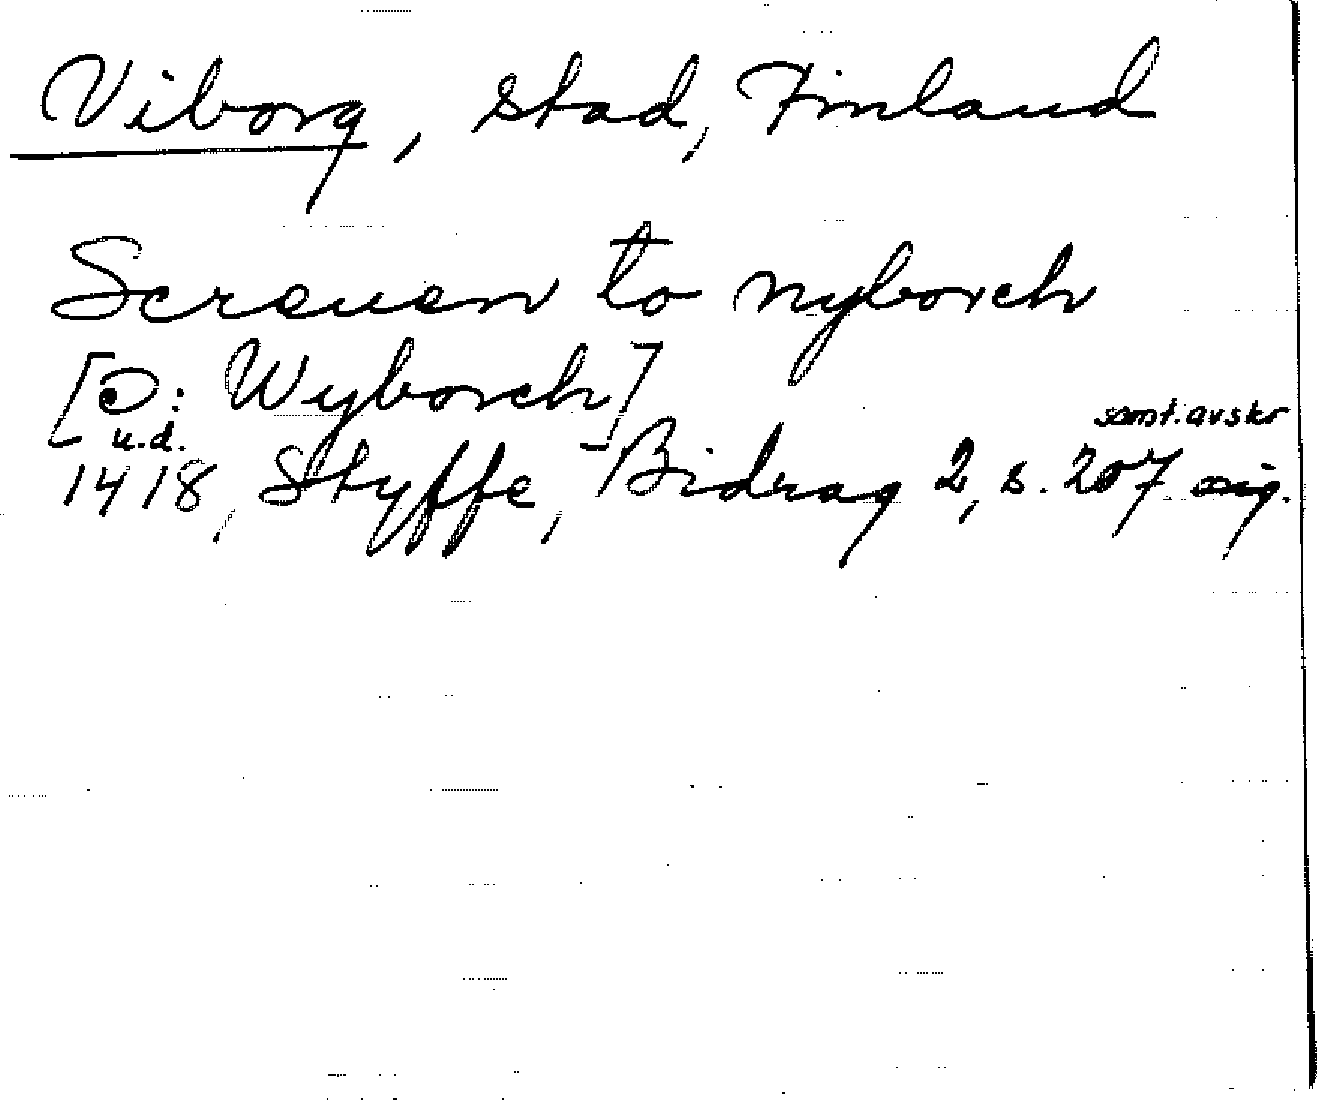 Viborg, stad, Finland
Screuen to nyborch
[ɔ: Wyborch]
u.d. samt. avskr
1418, Styffe, Bidrag 2, s. 207 orig.